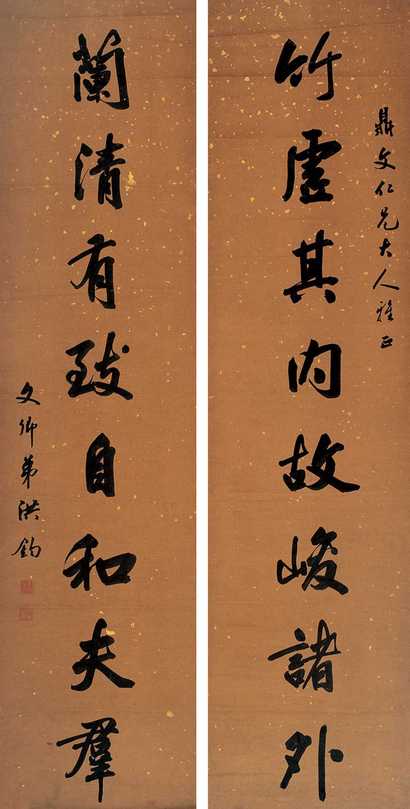 鼎文仁兄大人雅正
竹虛其內故峻諸外
蘭清有致自和夫羣
文卿弟洪鈞